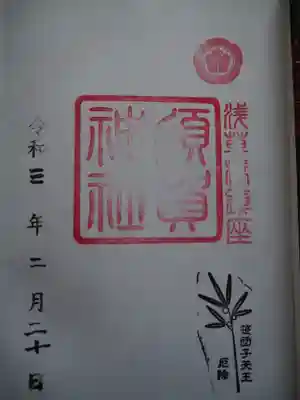 浅草橋鎮座
須賀
神社
笹団子天王
厄除
令和三年二月二十日